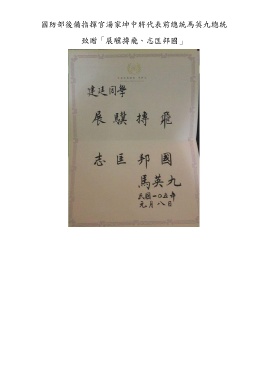 國防部後備指揮官湯家坤中將代表前總統馬英九總統
致贈「展驥搏飛，志匡邦國」
建廷同學
展驥搏飛
志匡邦國
馬英九
民國一〇五年
元月八日